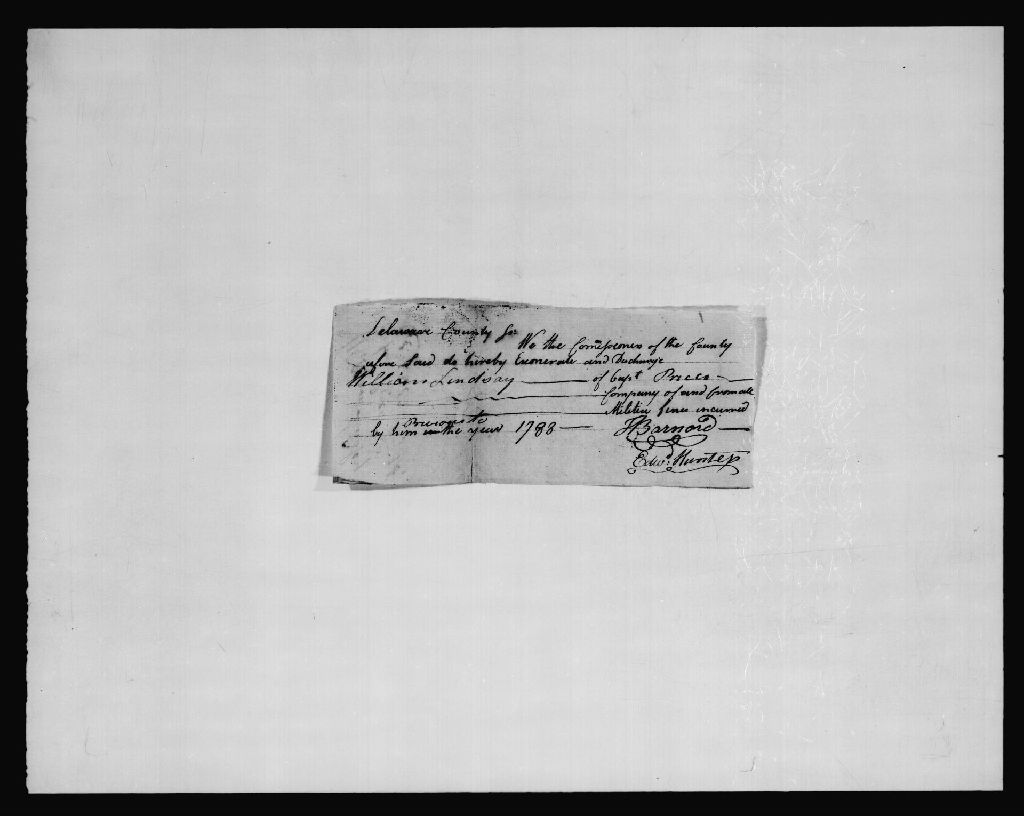 Delaware County ss
We the Comissioners of the County
afore Said do hereby Exonerate and Discharge
William Lindsay of Capt Prices
Company of and from all
Militia fines incurred
Previous to
by him in the year 1788
J Barnard
Edwd Hunter